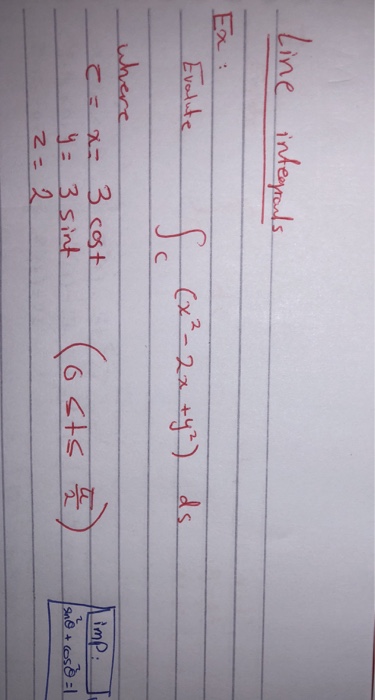 Line integrals
Ex :
Evalute ∫c (x² - 2x + y²) ds
where
c = x = 3 cost
y = 3 sint (0 ≤ t ≤ π/2)
z = 2
imp:
sin²θ + cos²θ = 1